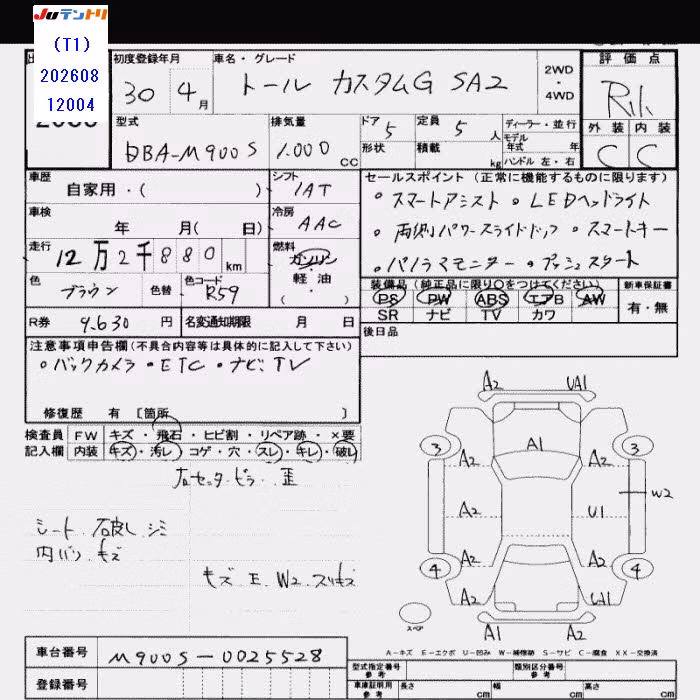 JUテントリ
(T1)
202608
12004
初度登録年月
車名・グレード
評価点
30 年 4 月
トール カスタムG SA2
2WD・4WD
R
外装 内装
C C
型式
DBA-M900S
排気量
1.000 cc
ドア 5
定員 5 人
形状
積載 kg
ディーラー・並行
モデル年式 年
ハンドル 左・右
車歴
自家用・( )
シフト
IAT
セールスポイント (正常に機能するものに限ります)
・スマートアシスト ・LEDヘッドライト
・両側パワースライドドア ・スマートキー
・パノラマモニター ・プッシュスタート
車検
年 月( 日)
冷房
AAC
走行
12万2千880 km
燃料
ガソリン・軽油
( )
色
ブラウン
色替
色コード
R59
装備品 (純正品に限り○をつけてください)
PS PW ABS エアB AW
SR ナビ TV カワ
新車保証書
有・無
R券 9.630 円
名変通知期限 月 日
後日品
注意事項申告欄 (不具合内容等は具体的に記入して下さい)
・バックカメラ ・ETC ・ナビ、TV
修復歴 有 [箇所 ]
検査員記入欄
FW キズ・飛石・ヒビ割・リペア跡・×要
内装 キズ・汚レ・コゲ・穴・スレ・キレ・破レ
右センターピラー 歪
シート 破レ シミ
内バリ キズ
キズ E W2 スリキズ
A2 UA1
3 A1 3
A2 A2
W2
A2 U1
A2 A2
4 4
A2 UA1
スペア
A1 A2
A-キズ E-エクボ U-凹み W-補修跡 S-サビ C-腐食 XX-交換済
車台番号 M900S-0025528
登録番号
型式指定番号 参考
類別区分番号 参考
車庫証明用 参考 長さ cm 幅 cm 高さ cm